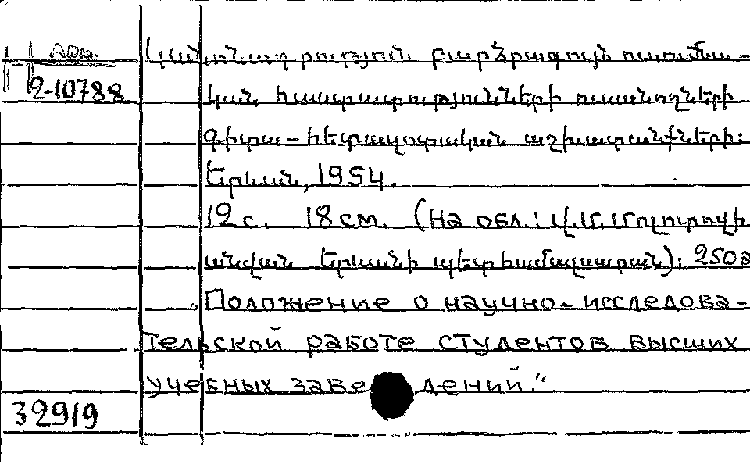 Арм.
2-10788
Կանոնադրություն բարձրագույն ուսումնա-
կան հաստատությունների ուսանողների
գիտա-հետազոտական աշխատանքների:
Երևան, 1954.
12 с. 18 см. (На обл.: Վ.Մ. Մոլոտովի
անվան Երևանի պետհամալսարան): 250э
Положение о научно-исследова-
тельской работе студентов высших
учебных заведений."
32919